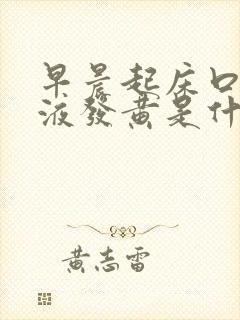 早晨起床口
液發黃是什
黃志雷